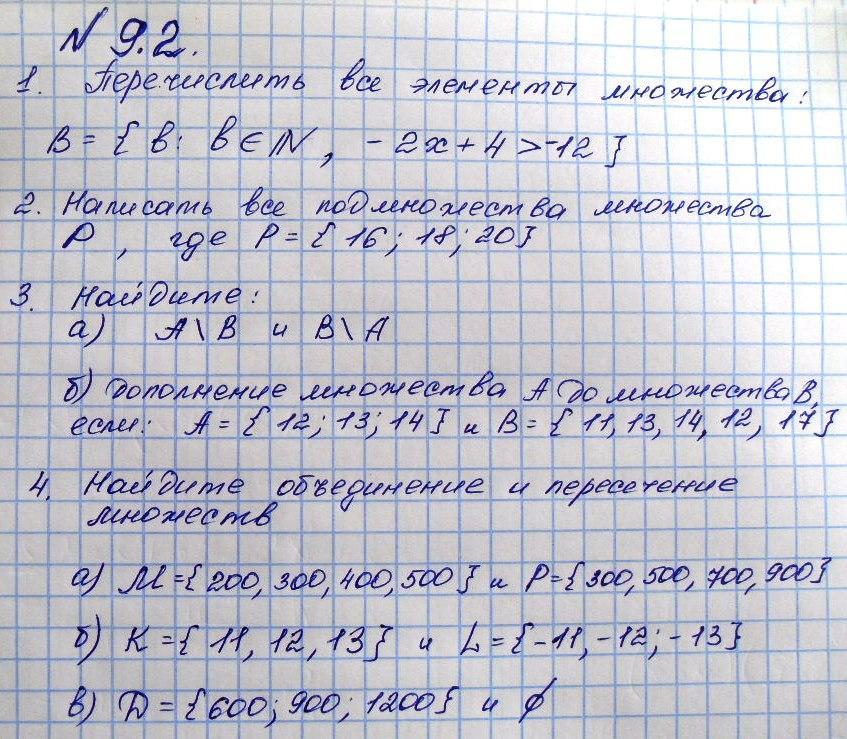 N 9.2.
1. Перечислить все элементы множества:
B = { b: b ∈ N, - 2x + 4 > -12 }
2. Написать все подмножества множества
P, где P = { 16; 18; 20}
3. Найдите:
a) A \ B и B \ A
б) Дополнение множества A до множества B,
если: A = { 12; 13; 14 } и B = { 11, 13, 14, 12, 17 }
4. Найдите объединение и пересечение
множеств
a) M = { 200, 300, 400, 500 } и P = {300, 500, 700, 900}
б) K = { 11, 12, 13 } и L = {-11, -12; -13}
в) D = {600; 900; 1200} и ∅